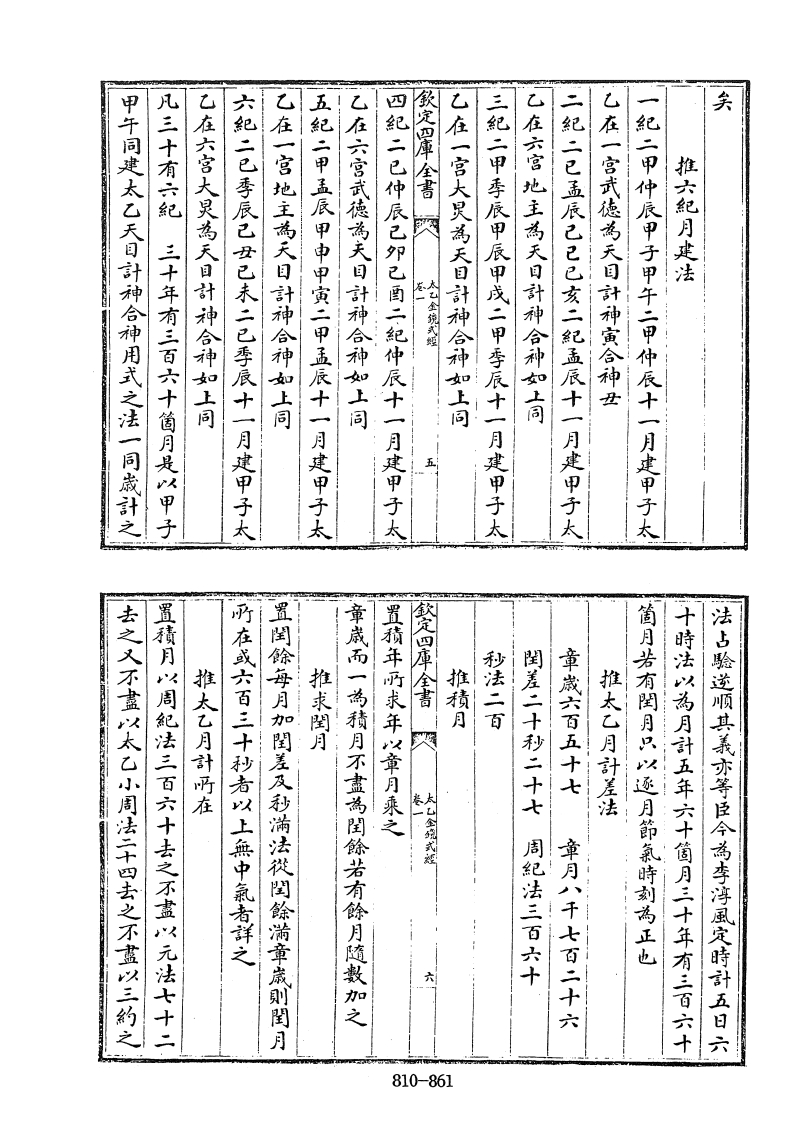 矣
推六紀月建法
一紀二甲仲辰甲子甲午二甲仲辰十一月建甲子太
乙在一宫武德為天目計神寅合神丑
二紀二已孟辰已已已亥二紀孟辰十一月建甲子太
乙在六宫地主為天目計神合神如上同
三紀二甲季辰甲辰甲戌二甲季辰十一月建甲子太
乙在一宫大炅為天目計神合神如上同
欽定四庫全書
太乙金鏡式經
卷一
五
四紀二已仲辰已夘已酉二紀仲辰十一月建甲子太
乙在六宫武德為天目計神合神如上同
五紀二甲孟辰甲申甲寅二甲孟辰十一月建甲子太
乙在一宫地主為天目計神合神如上同
六紀二已季辰已丑已未二已季辰十一月建甲子太
乙在六宫大炅為天目計神合神如上同
凡三十有六紀 三十年有三百六十箇月是以甲子
甲午同建太乙天目計神合神用式之法一同歲計之
法占驗逆順其義亦等臣今為李淳風定時計五日六
十時法以為月計五年六十箇月三十年有三百六十
箇月若有閏月只以逐月節氣時刻為正也
推太乙月計差法
章歲六百五十七 章月八千七百二十六
閏差二十秒二十七 周紀法三百六十
秒法二百
推積月
欽定四庫全書
太乙金鏡式經
卷一
六
置積年所求年以章月乘之
章歲而一為積月不盡為閏餘若有餘月隨數加之
推求閏月
置閏餘每月加閏差及秒滿法從閏餘滿章歲則閏月
所在或六百三十秒者以上無中氣者詳之
推太乙月計所在
置積月以周紀法三百六十去之不盡以元法七十二
去之又不盡以太乙小周法二十四去之不盡以三約之
810-861